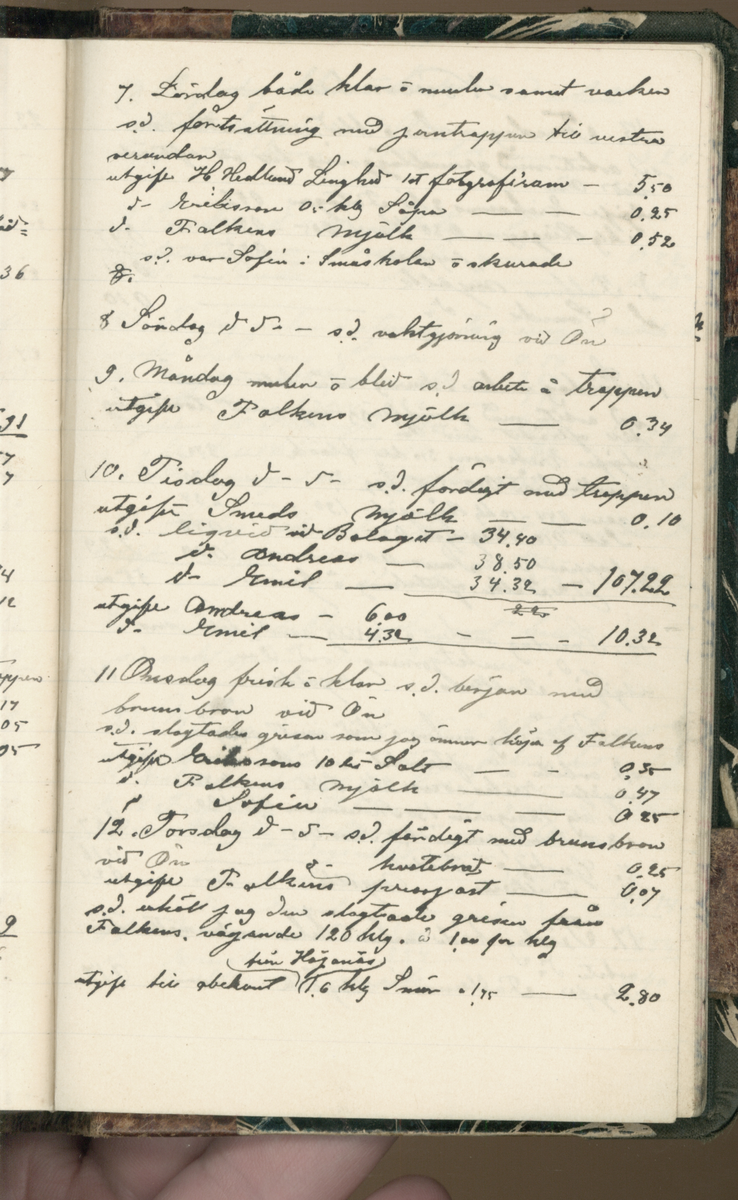 7. Lördag både klar o mulen samt vacker
s.d. fortsättning med jerntrappen till vestra
verandan
utgift H Hedlund Linghed 1st fotografiram – 5,50
d– Erikson 0,5 klg Såpa — — 0,25
d– Falkens Mjölk — — – 0,52
s.d. var Sofia i Småskolan o skurade
8.
8 Söndag d d– – s.d. vaktgjöring vid Ön
9. Måndag mulen o blid s.d arbete å trappen
utgift Falkens Mjölk — 0.34
10. Tisdag d – d – s.d. färdigt med trappen
utgift Smeds Mjölk — — 0.10
s.d. liqvid vid Bolaget – 34.40
d– Andreas — 38.50
d– Emil — 34.32 – 107.22
22
utgift Andreas – 6,00
d– Emil — 4.32 – – – 10.32
11 Onsdag frisk o klar s.d. början med
brunsbron vid Ön
s.d. slagtades grisen som jag ämnar köpa af Falkens
utgift Eriksons 10 Salt — – 0,35
d. Falkens Mjölk — — 0,47
d Sofia — — — 0 25
12. Torsdag d – d – s.d. färdigt med brunsbron
vid Ön d– hvetebröd — 0,25
utgift Falkens pressjäst — 0,07
s.d. erhöll jag den slagtade grisen från
Falkens. vägande 120 klg. à 1,00 per klg
från Höjenäs
utgift till obekant 1,6 klg Smör a 1,75 — 2.80